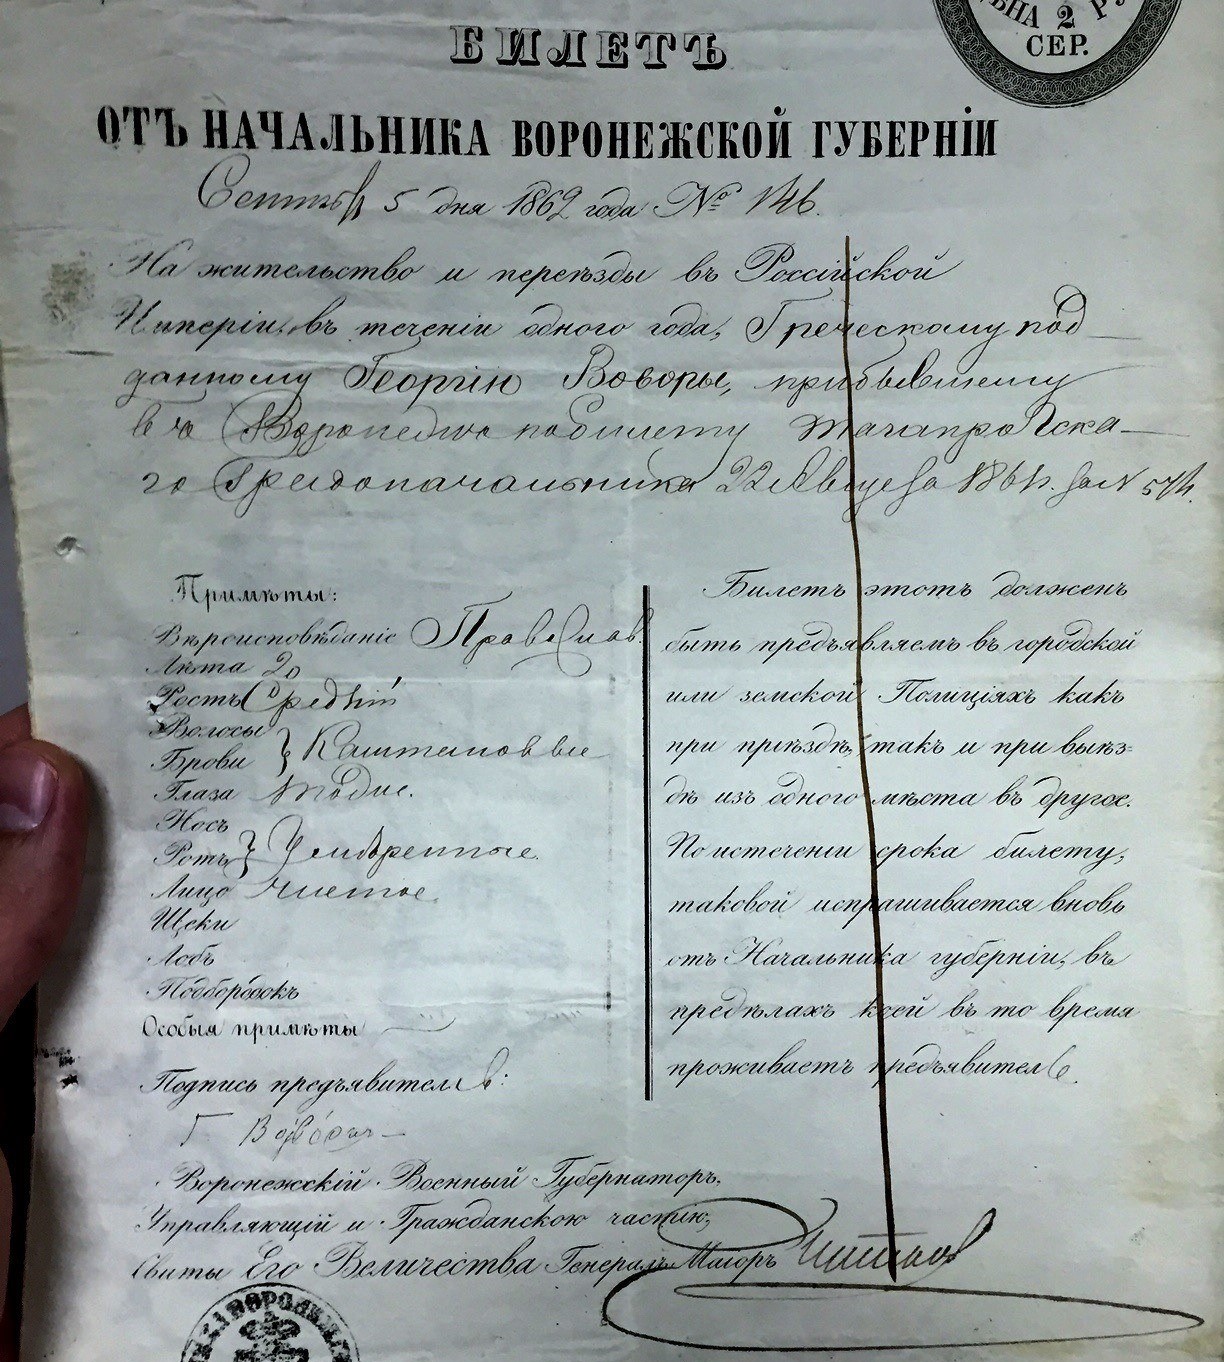 ЦѢНА 2 РУ
СЕР.
БИЛЕТЪ
ОТЪ НАЧАЛЬНИКА ВОРОНЕЖСКОЙ ГУБЕРНІИ
5 дня 1862 года № 146.
На жительство и переѣзды въ Россійской
Имперіи, въ теченіи одного года, Греческому под-
данному Георгію Воворы, прибывшему
въ Воронежъ по билету Таганрогска-
го Градоначальника 22 Августа 1861 г. за №
Примѣты:
Вѣроисповѣданіе Православ.
Лѣта 20
Ростъ Средній
Волосы
Брови } Каштановые
Глаза
Носъ
Ротъ } Умѣренные.
Лицо чистое.
Щеки
Лобъ
Подбородокъ
Особыя примѣты —
Подпись предъявителя:
Г.
Билетъ этотъ долженъ
быть предъявляемъ въ городской
или земской Полиціяхъ какъ
при пріѣздѣ, такъ и при выѣз=
дѣ изъ одного мѣста въ другое.
По истеченіи срока билету,
таковой испрашивается вновь
отъ Начальника губерніи, въ
предѣлахъ коей въ то время
проживаетъ предъявитель.
Воронежскій Военный Губернаторъ,
Управляющій и Гражданскою частію,
Свиты Его Величества Генералъ-Маіоръ